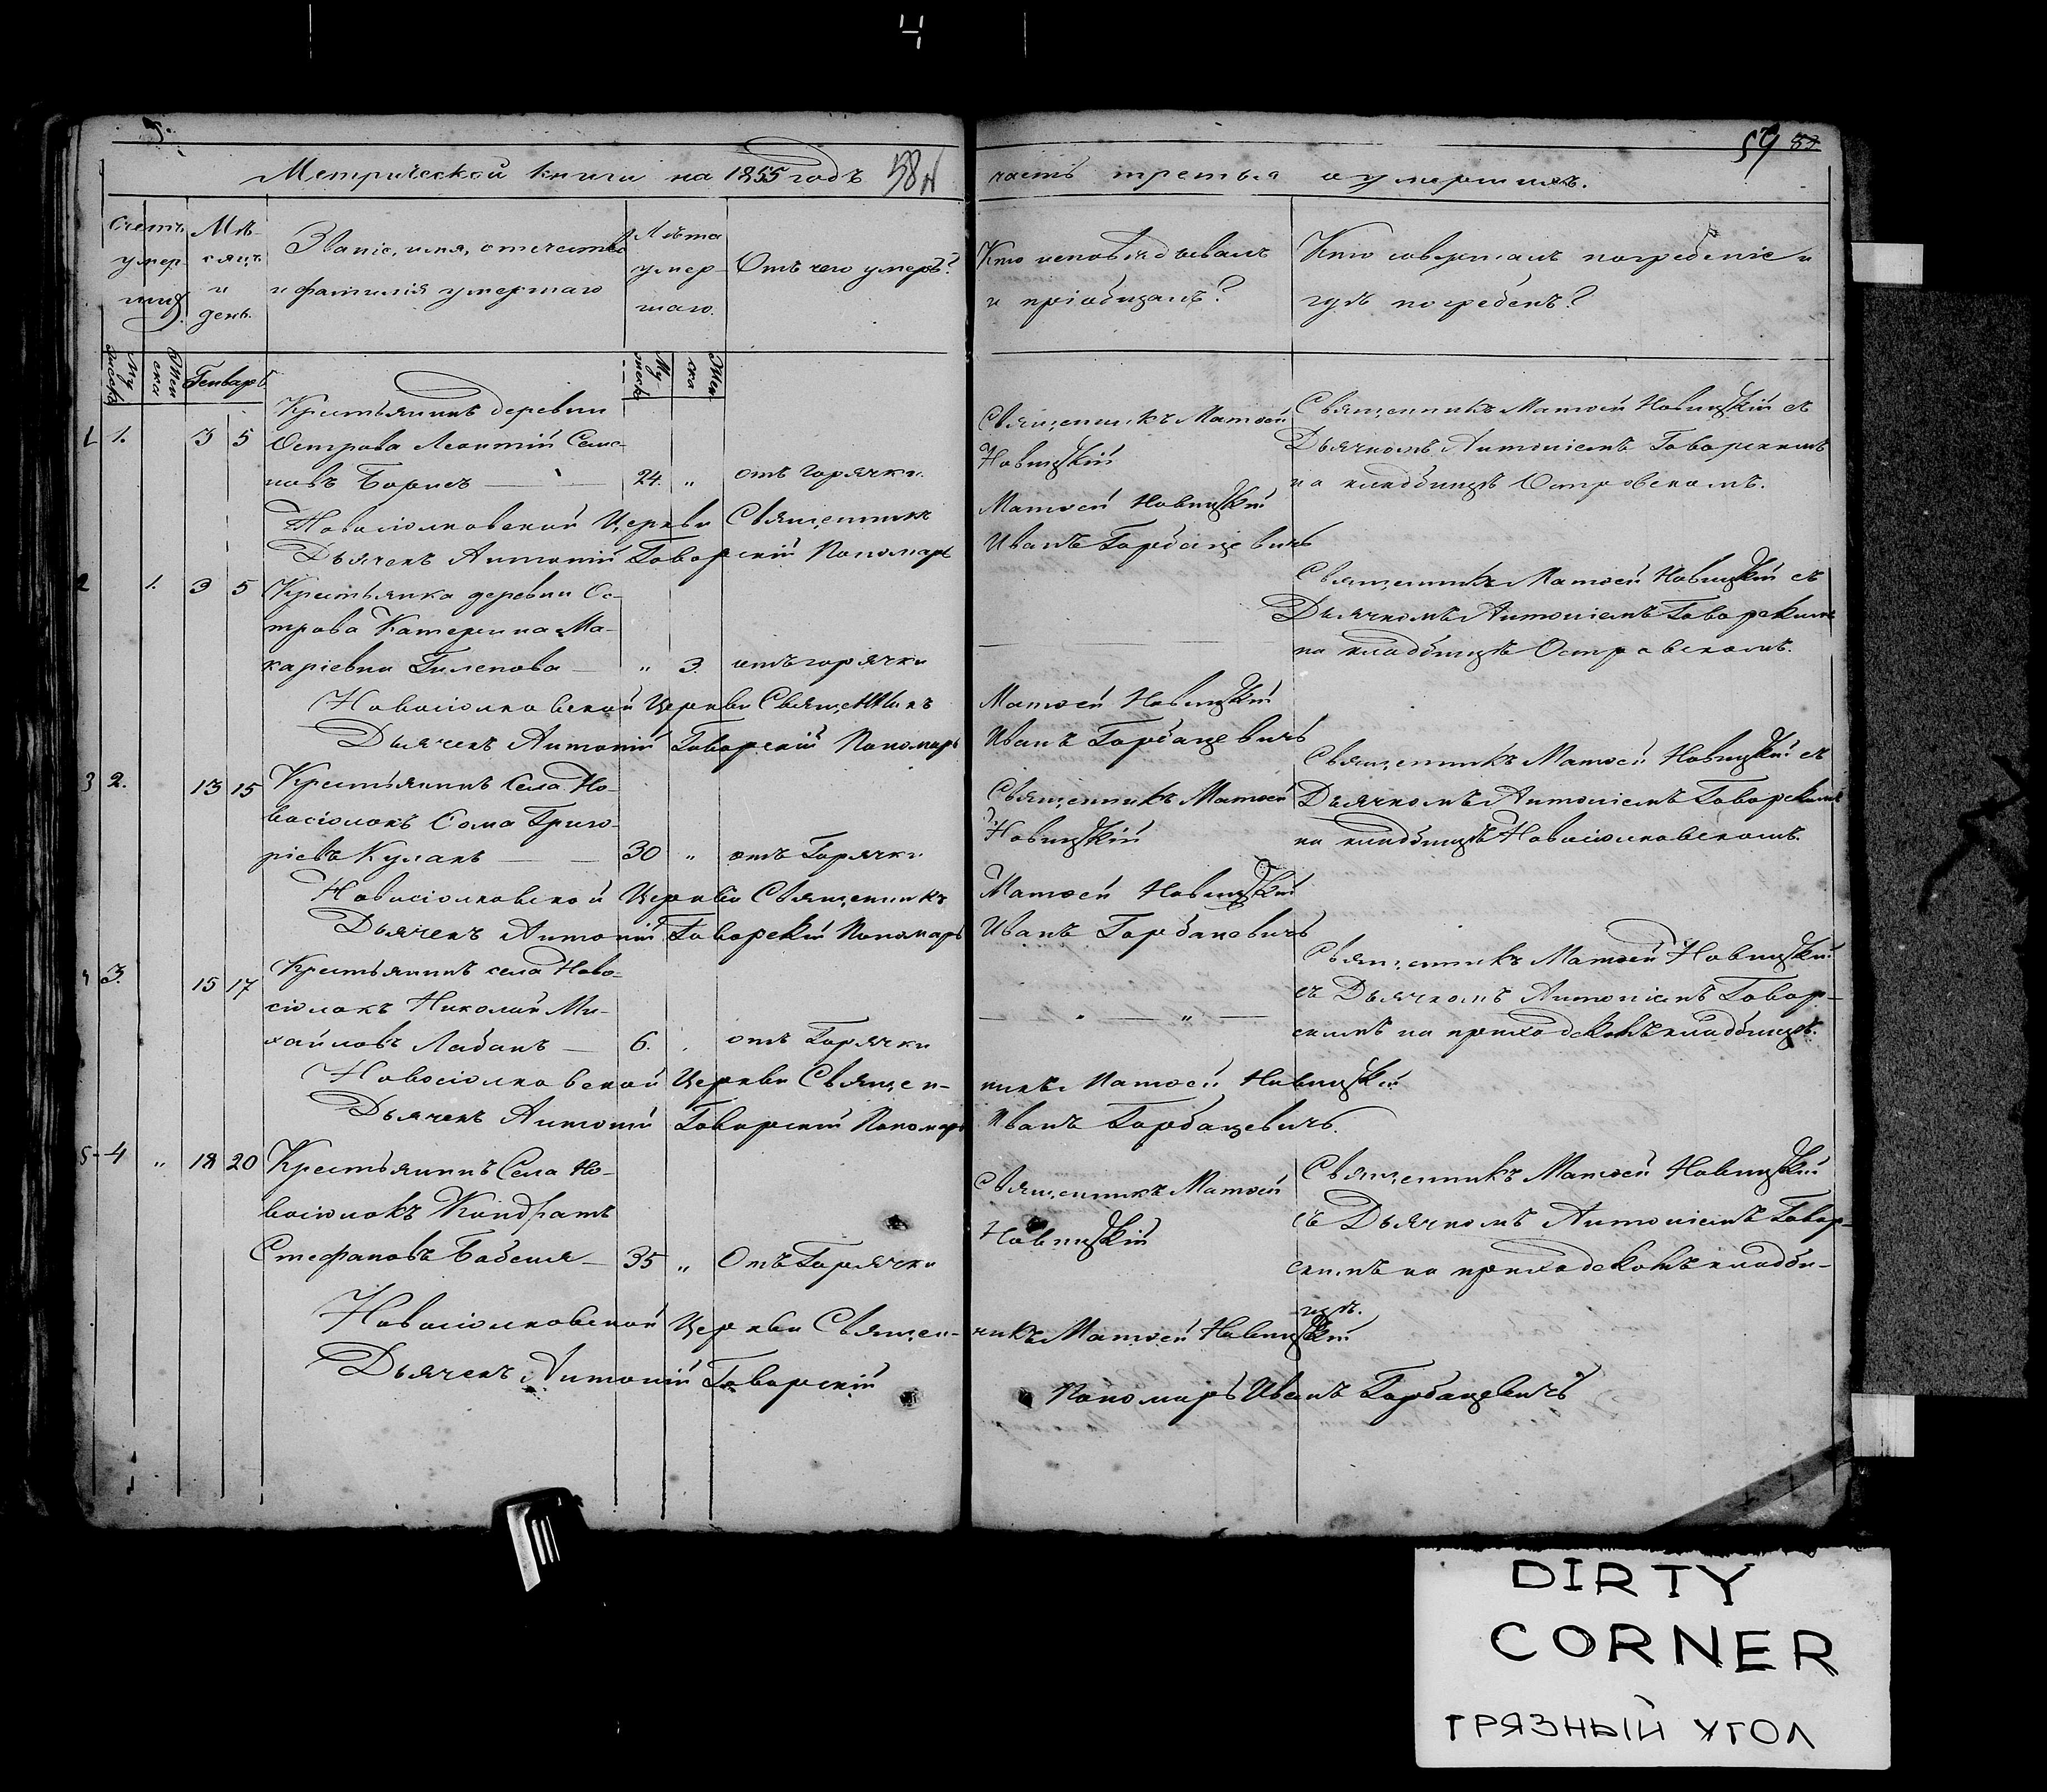 Ч
Метрической книги на 1855 годъ 58
часть третья о умершихъ.
59
Счетъ умер-
шихъ.
Мѣ-
сяцъ
и
день.
Званіе, имя, отечество
и фамилія умершаго
Лѣта
умер-
шаго.
Отъ чего умеръ?
Кто исповѣдывалъ
и пріобщалъ?
Кто совершалъ погребеніе и
гдѣ погребенъ?
Му
жеска
Жен
ска
Генваръ
Му-
жеск
Жен-
ска
1 1. 3 5
Крестьянинъ деревни
Острова Леонтій Семе-
новъ Борисъ — 24. „ отъ горячки.
Священникъ Матѳей
Новицкій
Священникъ Матѳей Новицкій съ
Дьячкомъ Антоніемъ Говорскимъ
на кладбищѣ Островскомъ.
Новосіолковской Церкви Священникъ Матѳей Новицкій
Дьячекъ Антоній Говорскій Пономарь Иванъ Горбацевичъ
2 1. 3 5
Крестьянка деревни Ос-
трова Катерина Ма-
каріевна Гиленова — „ 3. отъ горячки
Священникъ Матѳей Новицкій съ
Дьячкомъ Антоніемъ Говорскимъ
на кладбищѣ Островскомъ.
Новосіолковской Церкви Священникъ Матѳей Новицкій
Дьячекъ Антоній Говорскій Пономарь Иванъ Горбацевичъ
3 2. 13 15
Крестьянинъ Села Но-
восіолокъ Сома Григо-
ріевъ Кулакъ — 30 „ отъ Горячки
Священникъ Матѳей
Новицкій
Священникъ Матѳей Новицкій съ
Дьячкомъ Антоніемъ Говорскимъ
на кладбищѣ Новосіолковскомъ.
Новосіолковской Церкви Священникъ Матѳей Новицкій
Дьячекъ Антоній Говорскій Пономарь Иванъ Горбацевичъ
4 3. 15 17
Крестьянинъ села Ново-
сіолокъ Николай Ми-
хайловъ Лабанъ — 6. отъ Горячки
— „ — „ —
Священникъ Матѳей Новицкій
съ Дьячкомъ Антоніемъ Говор-
скимъ на приходскомъ кладбищѣ.
Новосіолковской Церкви Священ- никъ Матѳей Новицкій
Дьячекъ Антоній Говорскій Пономарь Иванъ Горбацевичъ.
5 4 „ 18 20
Крестьянинъ Села Но-
восіолокъ Кондратъ
Стефановъ Бабеня — 35 „ Отъ Горячки
Священникъ Матѳей
Новицкій
Священникъ Матѳей Новицкій
съ Дьячкомъ Антоніемъ Говор-
скимъ на приходскомъ кладби-
щѣ.
Новосіолковской Церкви Священ- никъ Матѳей Новицкій
Дьячекъ Антоній Говорскій Пономарь Иванъ Горбацевичъ
DIRTY
CORNER
ГРЯЗНЫЙ УГОЛ